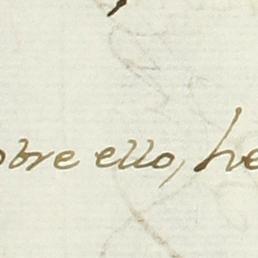 obre ello, he